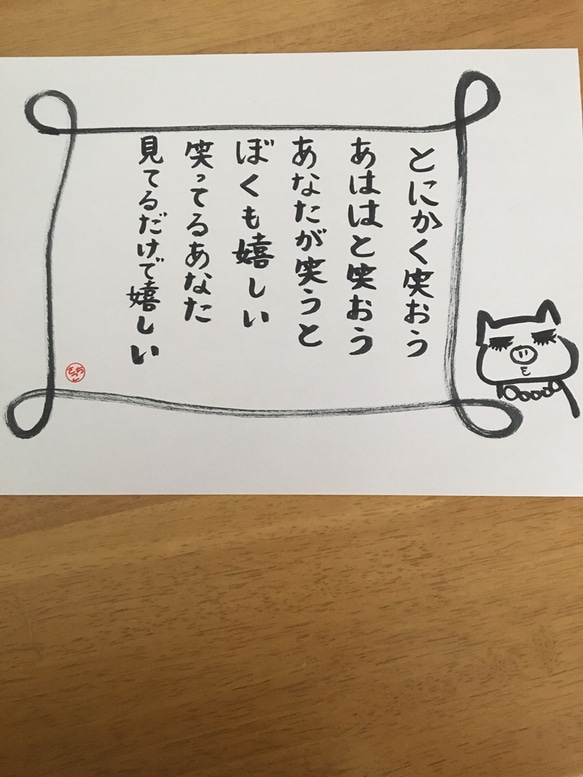 とにかく笑おう
あははと笑おう
あなたが笑うと
ぼくも嬉しい
笑ってるあなた
見てるだけで嬉しい